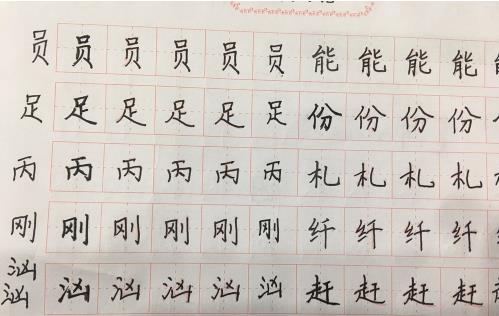 员员员员员员能能能能
足足足足足足份份份份
丙丙丙丙丙丙札札札札
刚刚刚刚刚刚纤纤纤纤
汹
汹汹汹汹汹汹赶赶赶赶